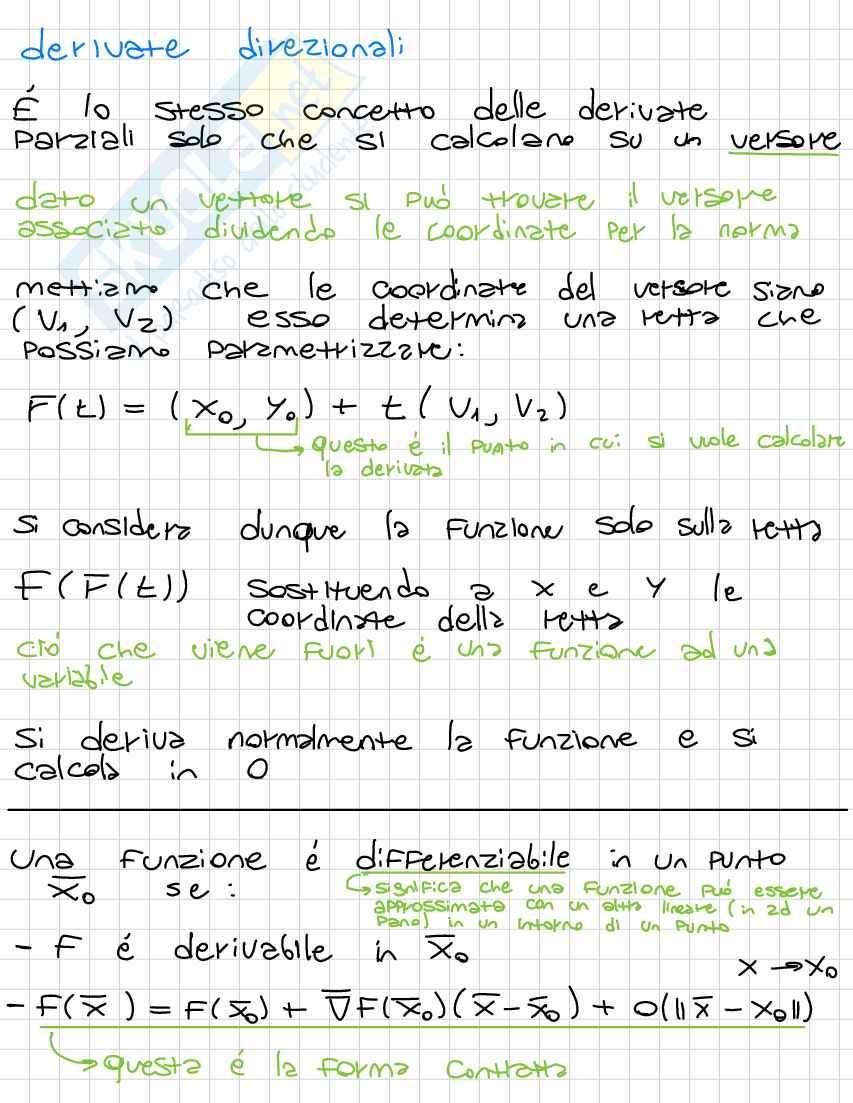 derivate direzionali
É lo stesso concetto delle derivate
parziali solo che si calcolano su un versore
dato un vettore si può trovare il versore
associato dividendo le coordinate per la norma
mettiamo che le coordinate del versore siano
(V₁, V₂) esso determina una retta che
possiamo parametrizzare:
F(t) = (x₀, y₀) + t(V₁, V₂)
questo é il punto in cui si vuole calcolare
la derivata
si considera dunque la funzione solo sulla retta
F(F(t)) sostituendo a x e y le
coordinate della retta
ció che viene fuori é una funzione ad una
variabile
Si deriva normalmente la funzione e si
calcola in 0
Una funzione é differenziabile in un punto
x̅₀ se:
significa che una funzione può essere
approssimata con un altra lineare (in 2d un
piano) in un intorno di un punto
- F é derivabile in x̅₀
x → x₀
- F(x̅) = F(x̅₀) + ∇̅F(x̅₀)(x̅ - x̅₀) + o(||x̅ - x₀||)
questa é la forma contratta